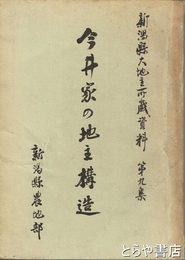 新潟縣大地主所蔵資料 第九集
今井家の地主構造
新潟縣農地部
とらや書店